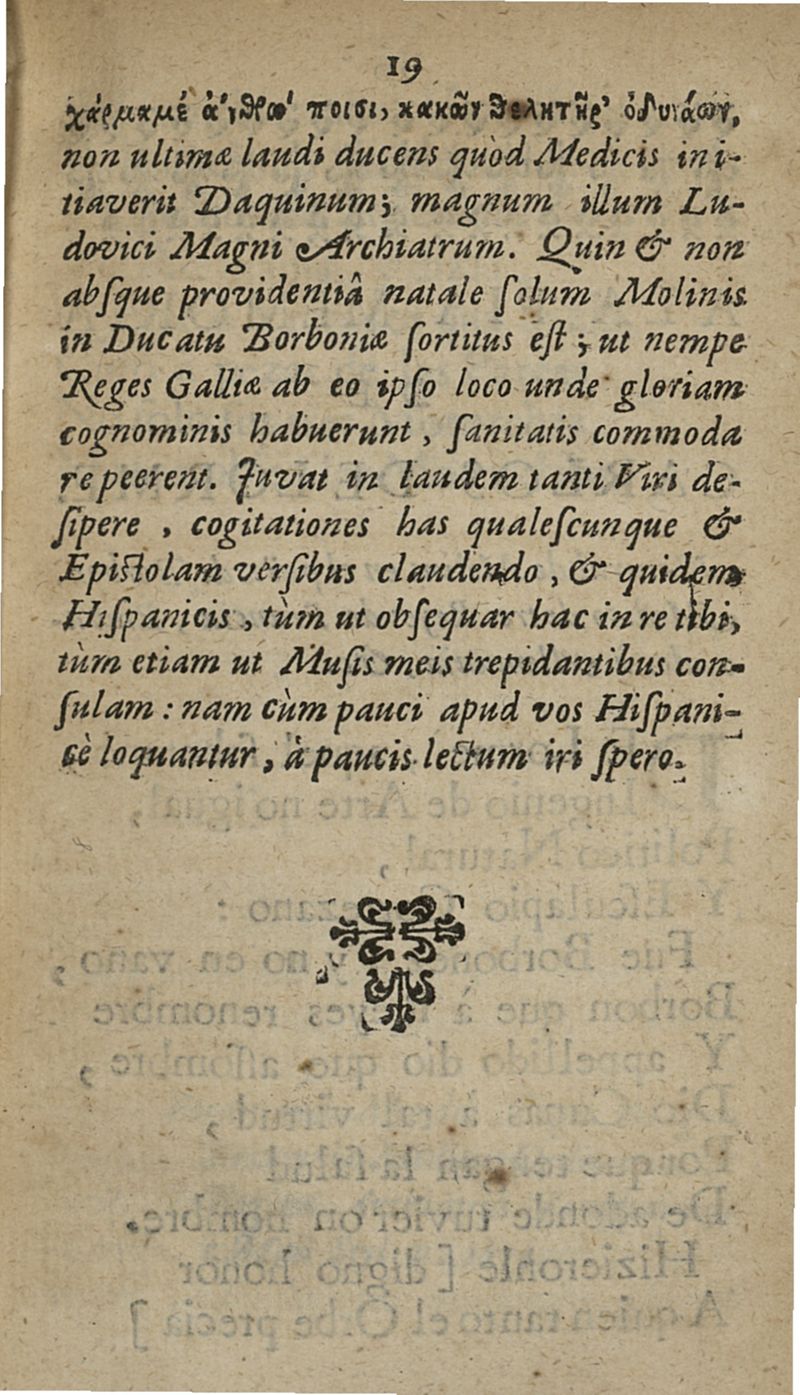 19
χάρμα μέγ' ἀνθρώποισι, κακῶν θελκτῆρ' ὀδυνάων,
non ultimæ laudi ducens quòd Medicis ini-
tiaverit Daquinum; magnum illum Lu-
dovici Magni Archiatrum. Quin & non
abſque providentiâ natale ſolum Molinis
in Ducatu Borboniæ ſortitus eſt; ut nempe
Reges Galliæ ab eo ipſo loco unde gloriam
cognominis habuerunt, ſanitatis commoda
repeerent. Juvat in laudem tanti Viri de-
ſipere, cogitationes has qualeſcunque &
Epiſtolam verſibus claudendo, & quidem
Hiſpanicis, tùm ut obſequar hac in re tibi,
tùm etiam ut Muſis meis trepidantibus con-
ſulam: nam cùm pauci apud vos Hiſpani-
cè loquantur, à paucis lectum iri ſpero.